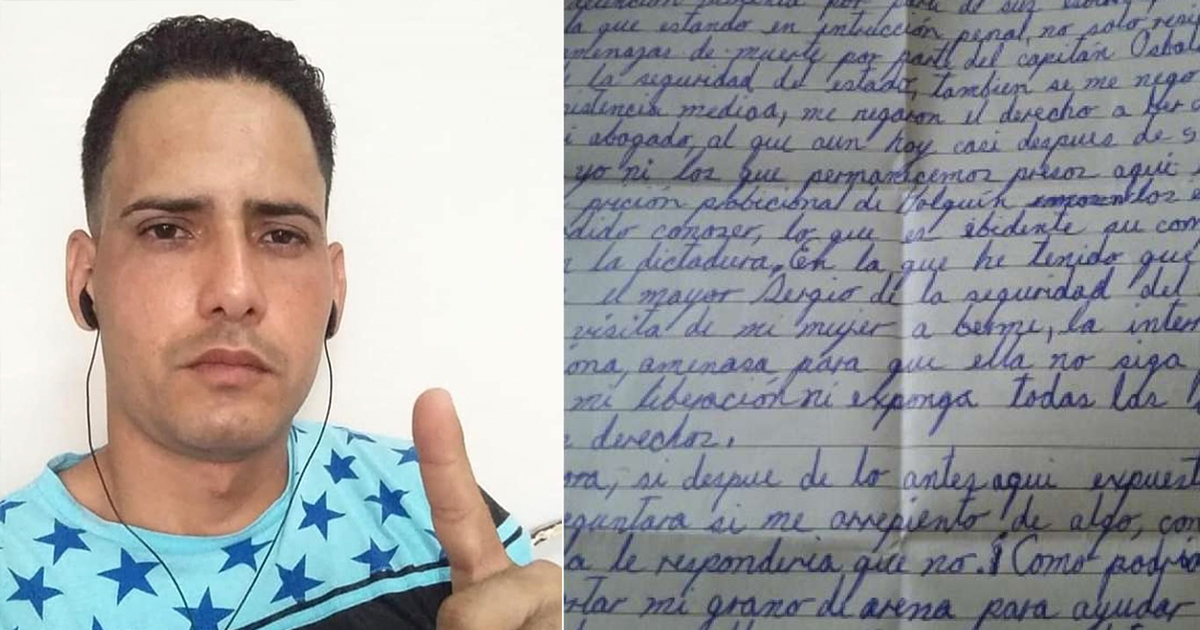 por parte de sus
la que estando en intrucción penal, no solo
amenazas de muerte por parte del capitán
la seguridad del estado, tambien se me nego
istencia medica, me negaron el derecho a ber a
i abogado, al que aun hoy casi despues de
yo ni los que permanecemos presos aqui
prición probicional de Holguin
dido conozer, lo que es ebidente su com
la dictadura. En la que he tenido que
el mayor Sergio de la seguridad del
visita de mi mujer a berme, la inter
ona, amenasa para que ella no siga
mi liberación ni exponga todas las
derechos.
ora, si despue de lo antes aqui expuest
eguntara si me arrepiento de algo, con
a le responderia que no. ¡Como podria
rtar mi grano de arena para ayudar